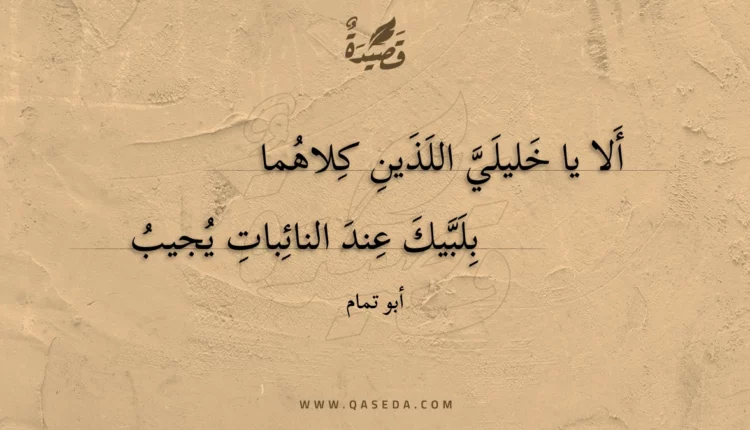 قَصِيدَةٌ
أَلا يا خَليلَيَّ اللَذَينِ كِلاهُما
بِلَبَّيكَ عِندَ النائِباتِ يُجيبُ
أبو تمام
WWW.QASEDA.COM